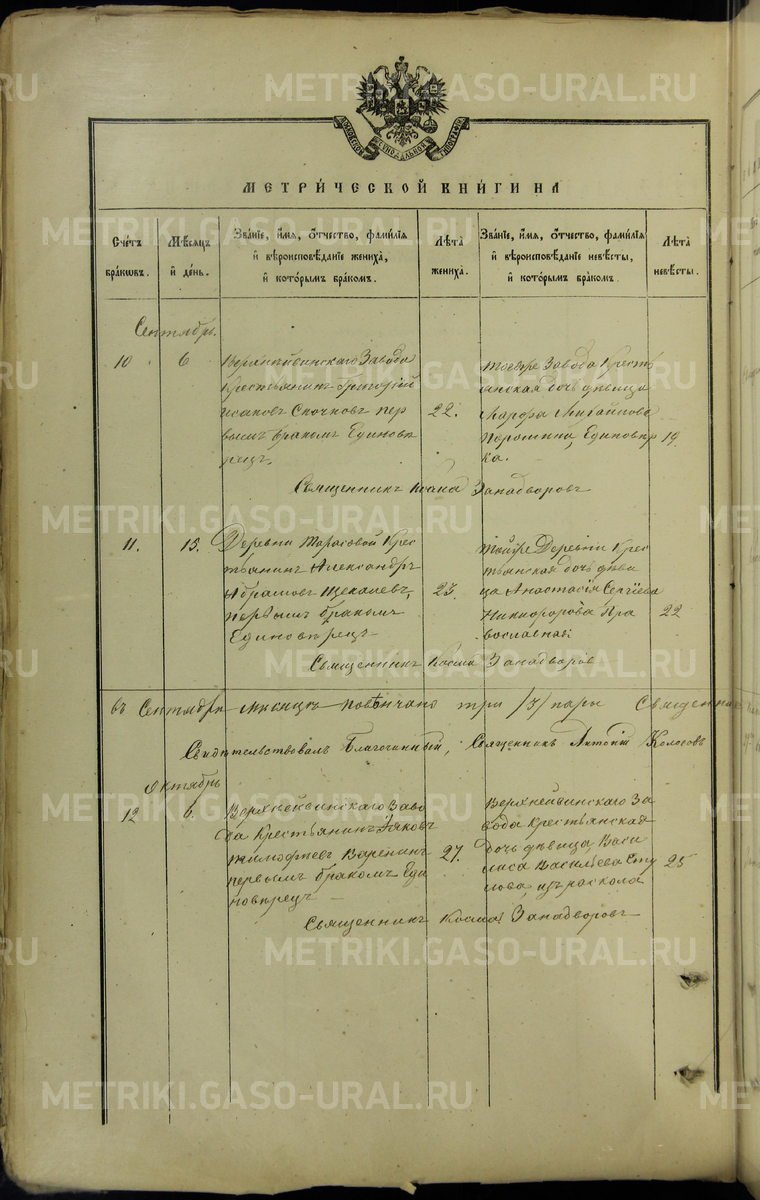 METRIKI.GASO-URAL.RU
МЕТРИ́ЧЕСКОЙ КНИ́ГИ НА
Сче́тъ бра́кωвъ.
Мѣ́сяцъ и҆ де́нь.
Зва́нїе, и҆́мѧ, ѻ҆́тчество, фами́лїѧ и҆ вѣроисповѣ́данїе жениха̀, и҆ кото́рымъ бра́комъ.
Лѣ́та жениха̀.
Зва́нїе, и҆́мѧ, ѻ҆́тчество, фами́лїѧ и҆ вѣроисповѣ́данїе невѣ́сты, и҆ кото́рымъ бра́комъ.
Лѣ́та невѣ́сты.
Сентябрь.
10
6
Верхнейвинскаго Завода
Крестьянинъ Григорій
Исаковъ Скочковъ пер
вымъ бракомъ Единовѣ
рецъ.
22.
тогоже Завода Кресть
янская дочь дѣвица
Марфа Михайлова
Порошина, Единовѣр
ка.
19
Священникъ Косма Западворовъ
11.
15.
Деревни Тарасовой Крес
тьянинъ Александръ
Абрамовъ Щекалевъ,
первымъ бракомъ
Единовѣрецъ
23.
тойже Деревни Крес
тьянская дочь дѣви
ца Анастасія Сергіева
Никифорова Пра
вославная.
22
Священникъ Косма Западворовъ
въ Сентябрѣ мѣсяцѣ повѣнчано три /3/ пары Священник
Свидѣтельствовалъ Благочинный, Священникъ Антоній Колосовъ
Октябрь
12
6.
Верхнейвинскаго Заво
да Крестьянинъ Іаковъ
Тимофеевъ Варенинъ
первымъ бракомъ Еди
новѣрецъ
27.
Верхнейвинскаго За
вода Крестьянская
дочь дѣвица Васи
лиса Васильева
изъ раскола
25
Священникъ Косма Западворовъ